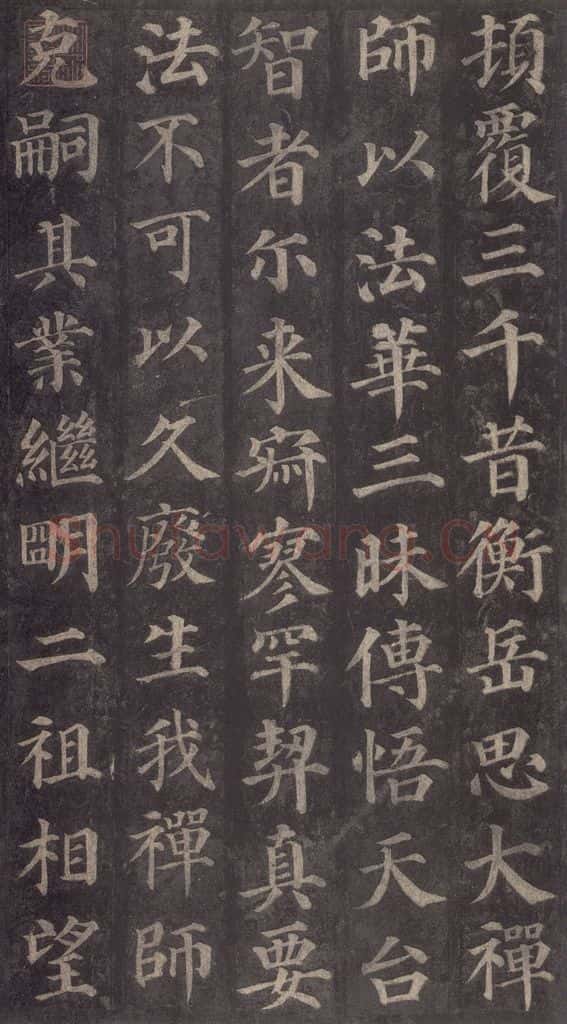 頂覆三千昔衡岳思大禪
師以法華三昧傳悟天台
智者尔来寂寥罕契真要
法不可以久廢生我禪師
克嗣其業繼明二祖相望
shufawang.cn